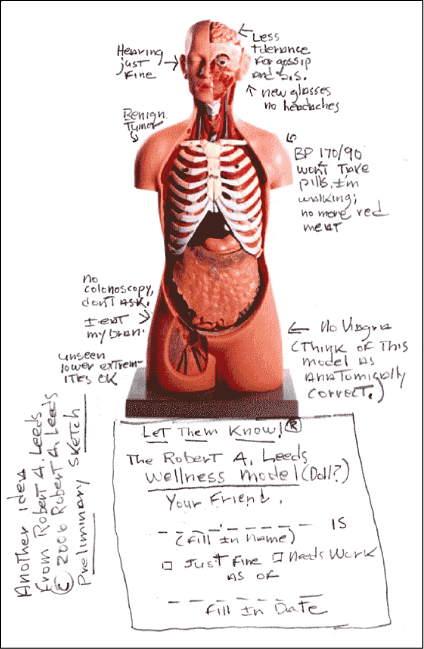 Hearing
just
Fine
Less
tolerance
For gossip
and B.S.
new glasses
no headaches
Benign
Tumor
BP 170/90
wont take
pills. Im
walking;
no more red
meat
no
colonoscopy,
don't ask.
I eat
my bran.
unseen
lower extrem-
ities OK
No Viagra
(Think of This
model as
anatomically
correct.)
Another idea
From Robert A. Leeds
© 2006 Robert A. Leeds
Preliminary Sketch
Let Them Know! ®
The Robert A. Leeds
Wellness Model (Doll?)
Your Friend,
_ _ _ _ _ _ _ _ _ IS
(Fill In Name)
□ Just Fine □ Needs Work
AS OF
_ _ _ _ _ _ _ _ _
Fill In Date